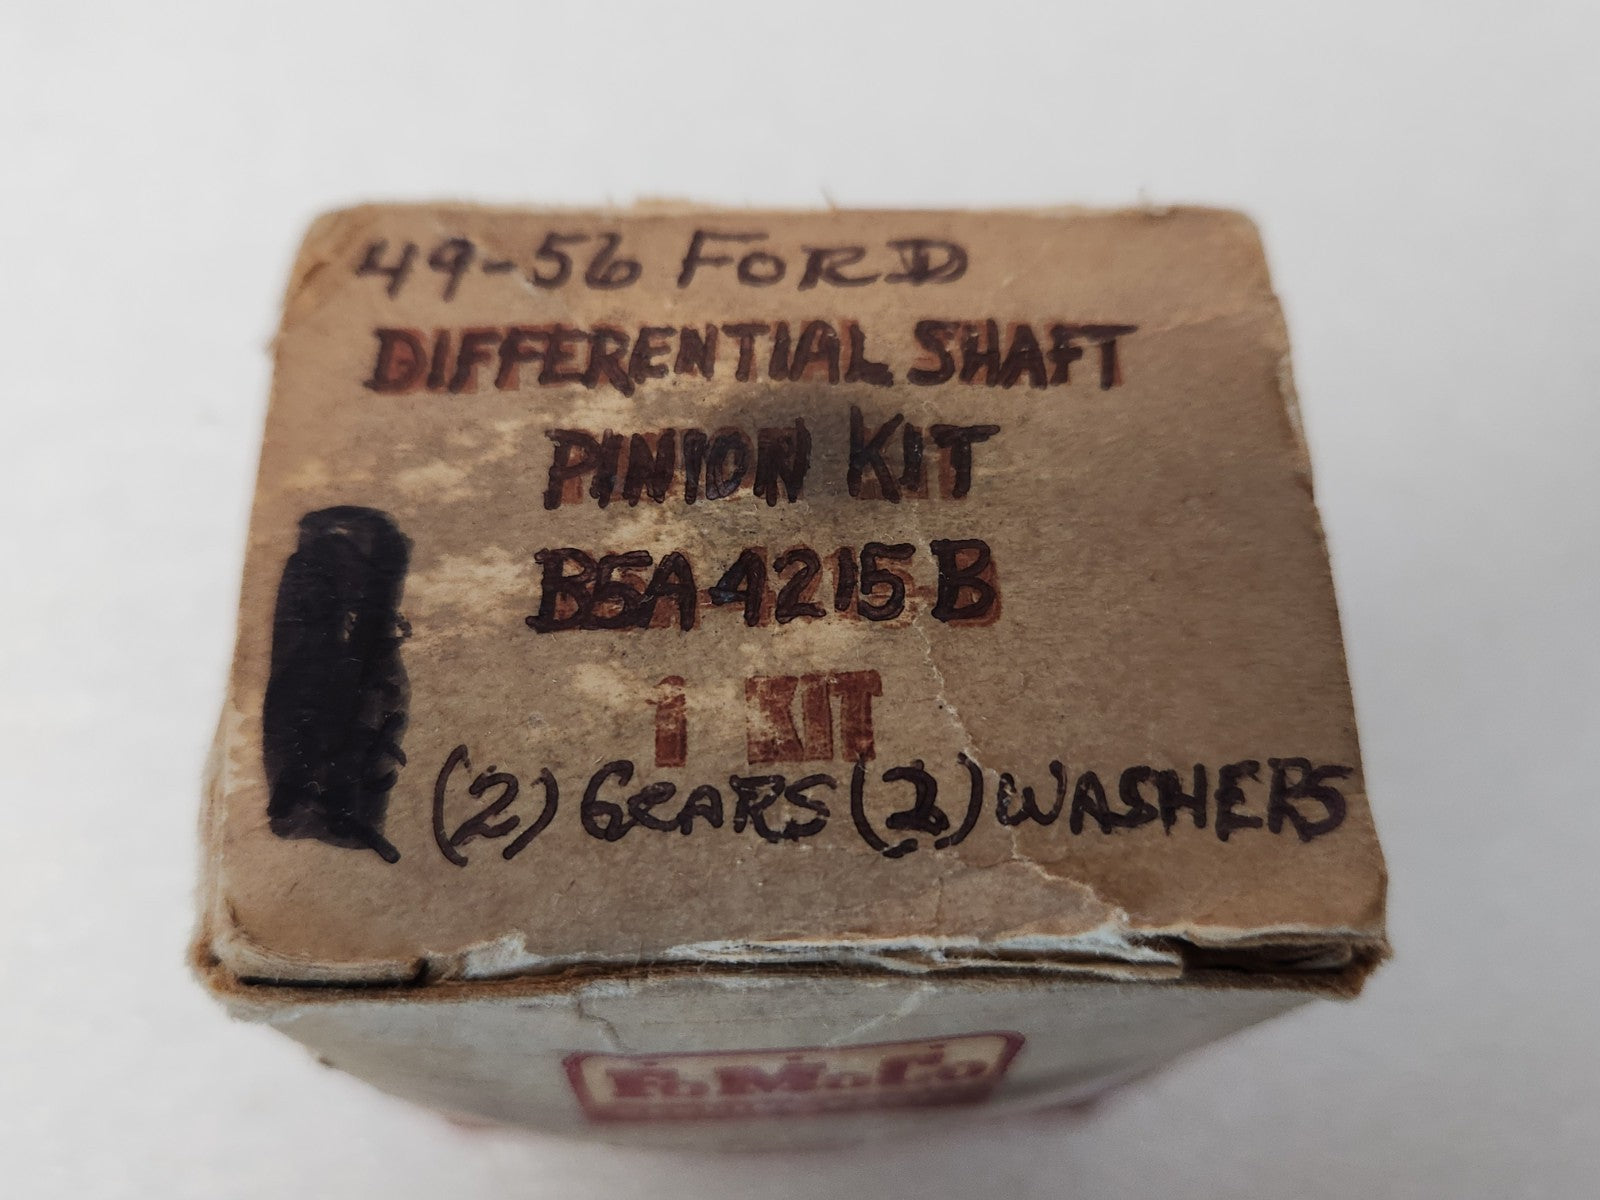 49-56 FORD
DIFFERENTIAL SHAFT
PINION KIT
B5A 4215 B
1 KIT
(2) GEARS (2) WASHERS
FoMoCo